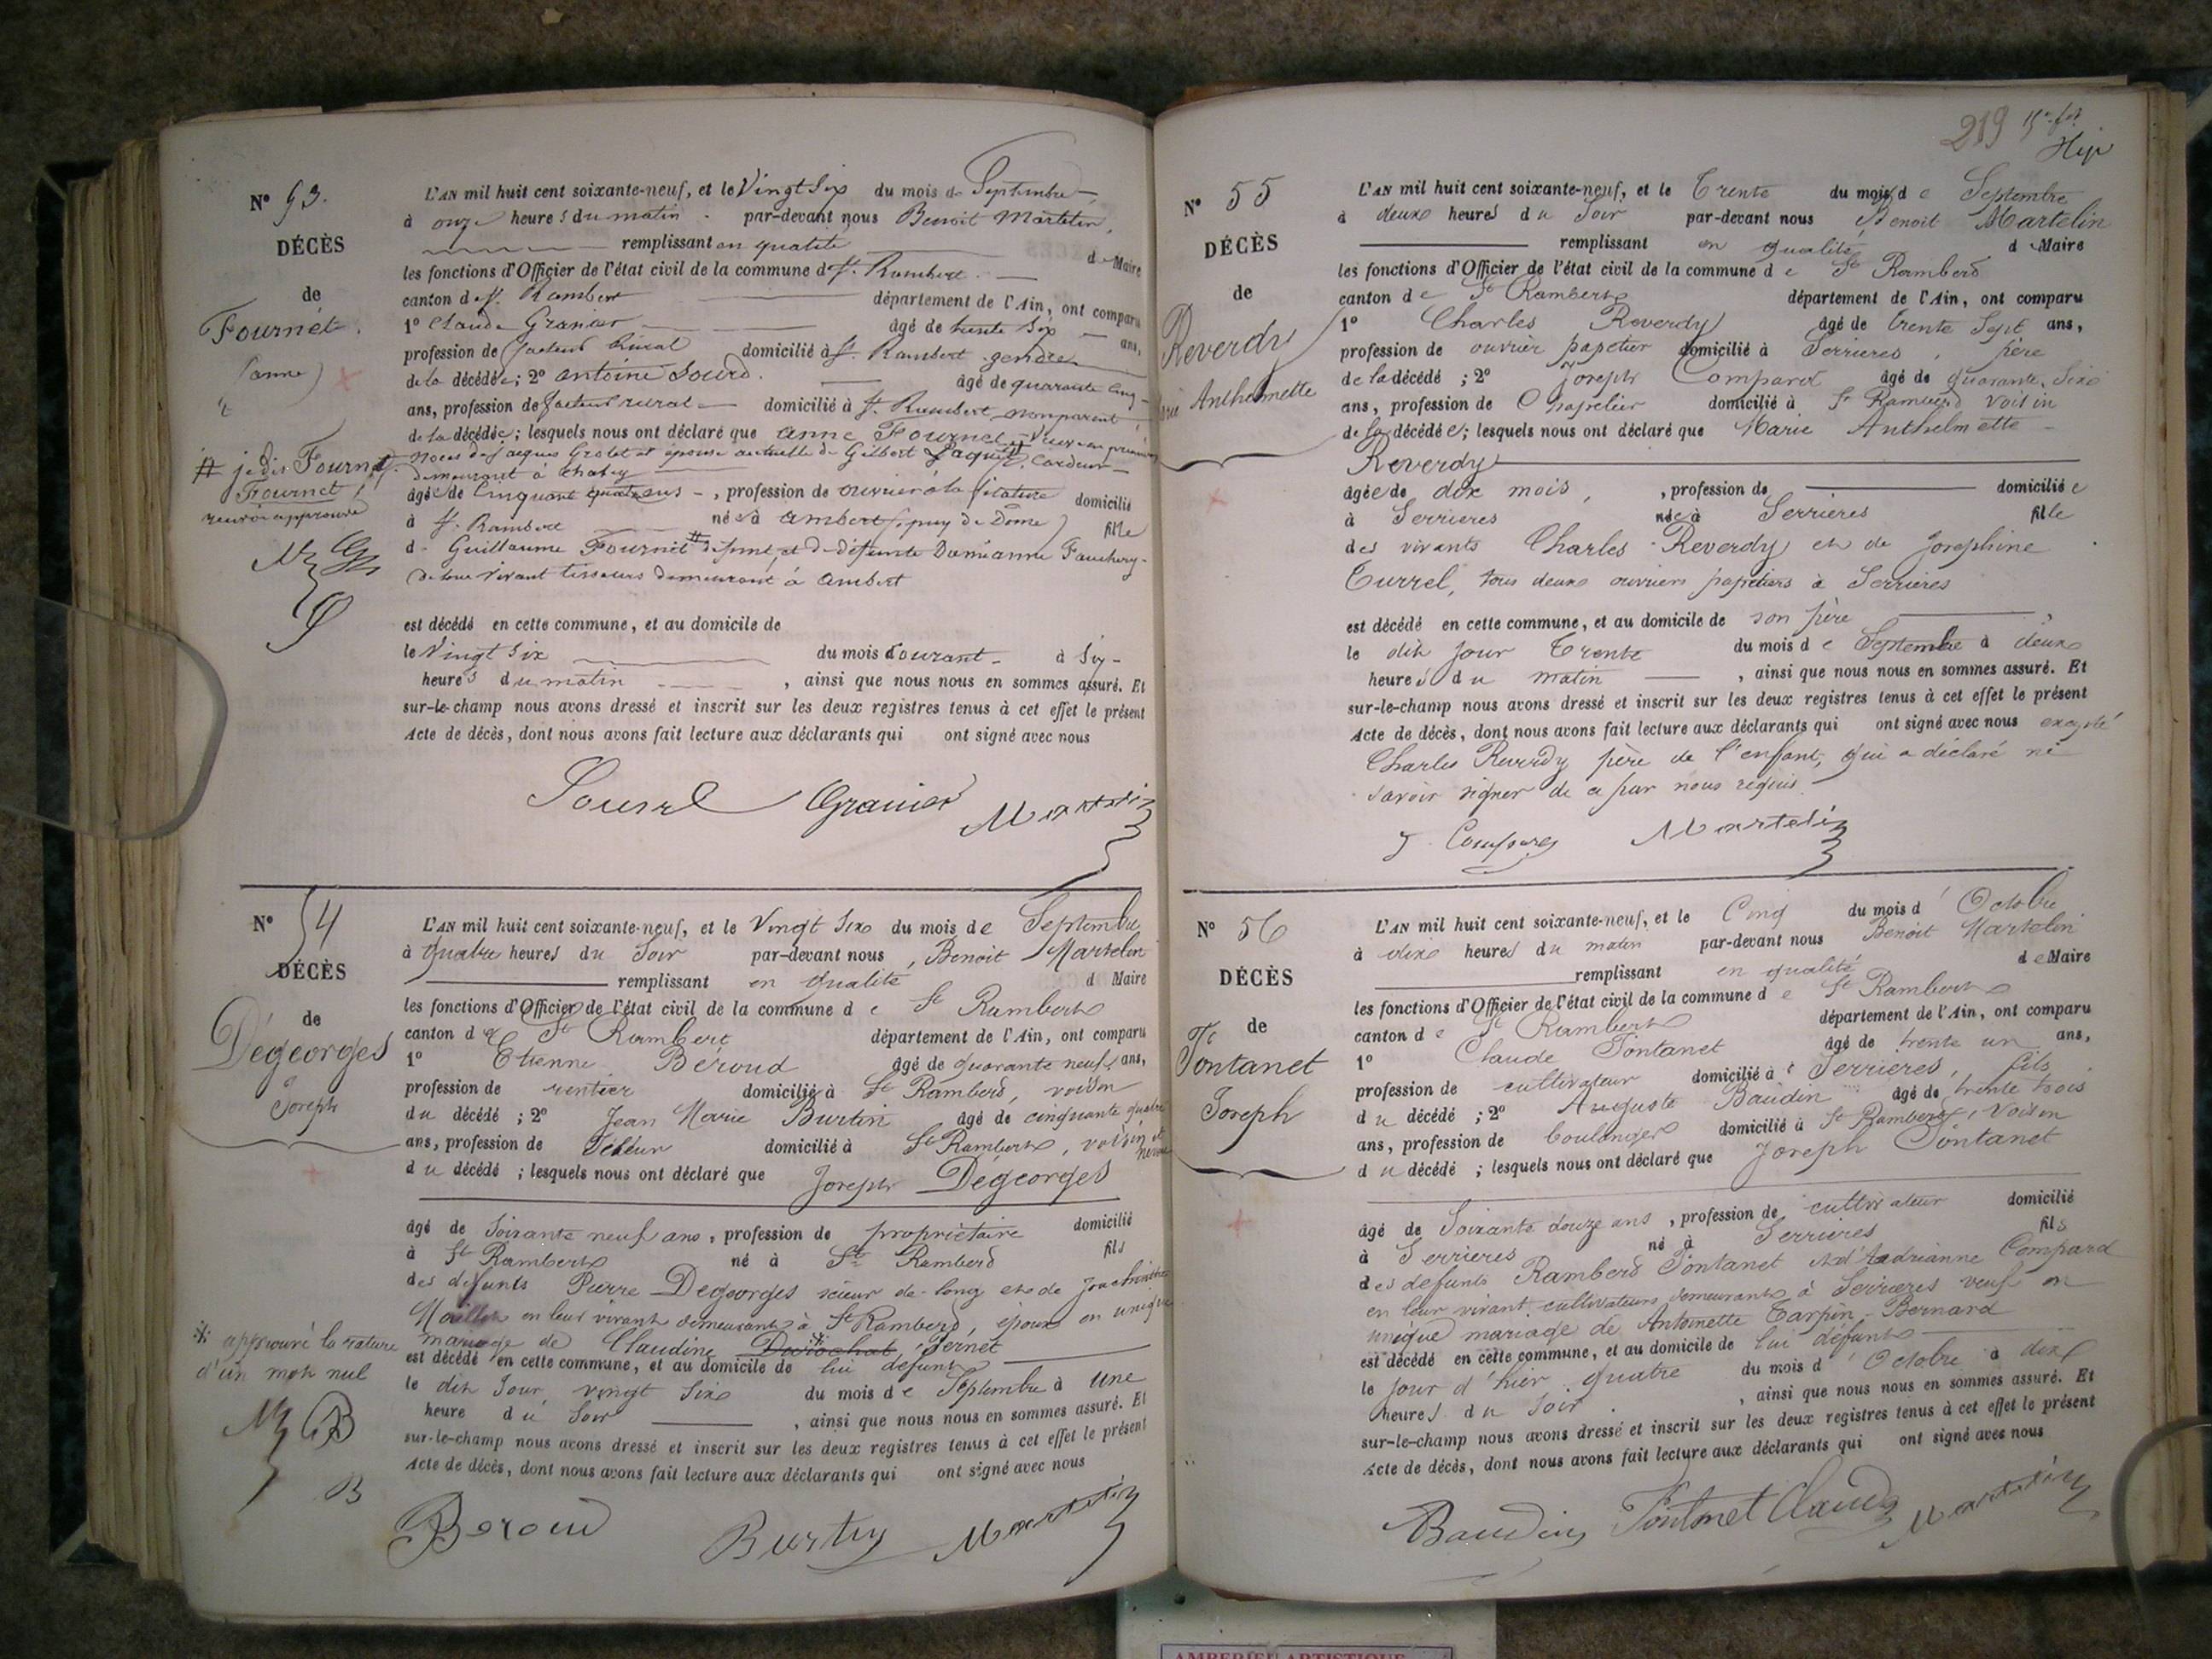 N° 53.
DÉCÈS
de
Fournet
(anne)
# je dis Fournet
Fournet,
renvoi approuvé
L'AN mil huit cent soixante-neuf, et le Vingt Six du mois de Septembre
à onze heures du matin par-devant nous Benoit Martelin,
remplissant en qualité de Maire
les fonctions d'Officier de l'état civil de la commune de St. Rambert
canton de St. Rambert département de l'Ain, ont comparu
1° Claude Granier âgé de trente Six ans,
profession de facteur Rural domicilié à St. Rambert gendre
de la décédée; 2° antoine Sourd. âgé de quarante cinq
ans, profession de facteur rural domicilié à St. Rambert non parent
de la décédée; lesquels nous ont déclaré que anne Fournet, Veuve en premières
noces de Jacques Grolet et épouse actuelle de Gilbert Cardeur
demeurant à
âgée de Cinquante quatre ans, profession de ouvrière à la filature domicilié
à St. Rambert née à ambert (puy de Dome) fille
de Guillaume Fournet # défunt, et de défunte Damianne Fauchery
de leur vivant tisseurs demeurant à ambert
est décédé en cette commune, et au domicile de
le Vingt Six du mois Courant à Six
heures du matin, ainsi que nous nous en sommes assuré. Et
sur-le-champ nous avons dressé et inscrit sur les deux registres tenus à cet effet le présent
Acte de décès, dont nous avons fait lecture aux déclarants qui ont signé avec nous
Sourd Granier Martelin
N° 54
DÉCÈS
de
Dégeorges
Joseph
* approuvé la rature
d'un mot nul
B
L'AN mil huit cent soixante-neuf, et le Vingt Six du mois de Septembre
à Quatre heures du Soir par-devant nous, Benoit Martelin
remplissant en qualité d Maire
les fonctions d'Officier de l'état civil de la commune de St Rambert
canton de St Rambert département de l'Ain, ont comparu
1° Etienne Béroud âgé de quarante neuf ans,
profession de rentier domicilié à St Rambert, voisin
du décédé; 2° Jean Marie Burtin âgé de cinquante quatre
ans, profession de domicilié à St Rambert, voisin et neveu
du décédé; lesquels nous ont déclaré que Joseph Degeorges
âgé de Soixante neuf ans, profession de propriétaire domicilié
à St Rambert né à St Rambert fils
des défunts Pierre Degeorges scieur de long et de
en leur vivant demeurant à St Rambert, époux en unique
mariage de Claudine * Pernet
est décédé en cette commune, et au domicile de lui défunt
le dit Jour vingt Six du mois de Septembre à une
heure du Soir, ainsi que nous nous en sommes assuré. Et
sur-le-champ nous avons dressé et inscrit sur les deux registres tenus à cet effet le présent
Acte de décès, dont nous avons fait lecture aux déclarants qui ont signé avec nous
Beroud Burtin Martelin
219
N° 55
DÉCÈS
de
Reverdy
Marie Anthelmette
L'AN mil huit cent soixante-neuf, et le Trente du mois de Septembre
à deux heures du Soir par-devant nous Benoit Martelin
remplissant en qualité d Maire
les fonctions d'Officier de l'état civil de la commune de St Rambert
canton de St Rambert département de l'Ain, ont comparu
1° Charles Reverdy âgé de trente Sept ans,
profession de ouvrier papetier domicilié à Serrieres, père
de la décédé; 2° Joseph Compard âgé de quarante Six
ans, profession de Chapelier domicilié à St Rambert voisin
de la décédée; lesquels nous ont déclaré que Marie Anthelmette
Reverdy
âgée de dix mois, profession de domiciliée
à Serrieres née à Serrieres fille
des vivants Charles Reverdy et de Josephine
Turrel, tous deux ouvriers papetiers à Serrieres
est décédé en cette commune, et au domicile de son père
le dit Jour Trente du mois de Septembre à deux
heures du matin, ainsi que nous nous en sommes assuré. Et
sur-le-champ nous avons dressé et inscrit sur les deux registres tenus à cet effet le présent
Acte de décès, dont nous avons fait lecture aux déclarants qui ont signé avec nous excepté
Charles Reverdy père de l'enfant, qui a déclaré ne
savoir signer de ce par nous requis.
J. Compard Martelin
N° 56
DÉCÈS
de
Fontanet
Joseph
L'AN mil huit cent soixante-neuf, et le Cinq du mois d'Octobre
à dix heures du matin par-devant nous Benoit Martelin
remplissant en qualité de Maire
les fonctions d'Officier de l'état civil de la commune de St Rambert
canton de St Rambert département de l'Ain, ont comparu
1° Claude Fontanet âgé de trente un ans,
profession de cultivateur domicilié à Serrieres, fils
du décédé; 2° Auguste Baudin âgé de trente trois
ans, profession de boulanger domicilié à St Rambert, voisin
du décédé; lesquels nous ont déclaré que Joseph Fontanet
âgé de Soixante douze ans, profession de cultivateur domicilié
à Serrieres né à Serrieres fils
des defunts Rambert Fontanet et d'Andrianne Compard
en leur vivant cultivateurs demeurants à Serrieres veuf en
unique mariage de Antoinette Tarpin-Bernard
est décédé en cette commune, et au domicile de lui défunt
le jour d'hier quatre du mois d'Octobre à dix
heures du Soir, ainsi que nous nous en sommes assuré. Et
sur-le-champ nous avons dressé et inscrit sur les deux registres tenus à cet effet le présent
Acte de décès, dont nous avons fait lecture aux déclarants qui ont signé avec nous
Baudin Fontanet Claude Martelin
AMBERIEU ARTISTIQUE